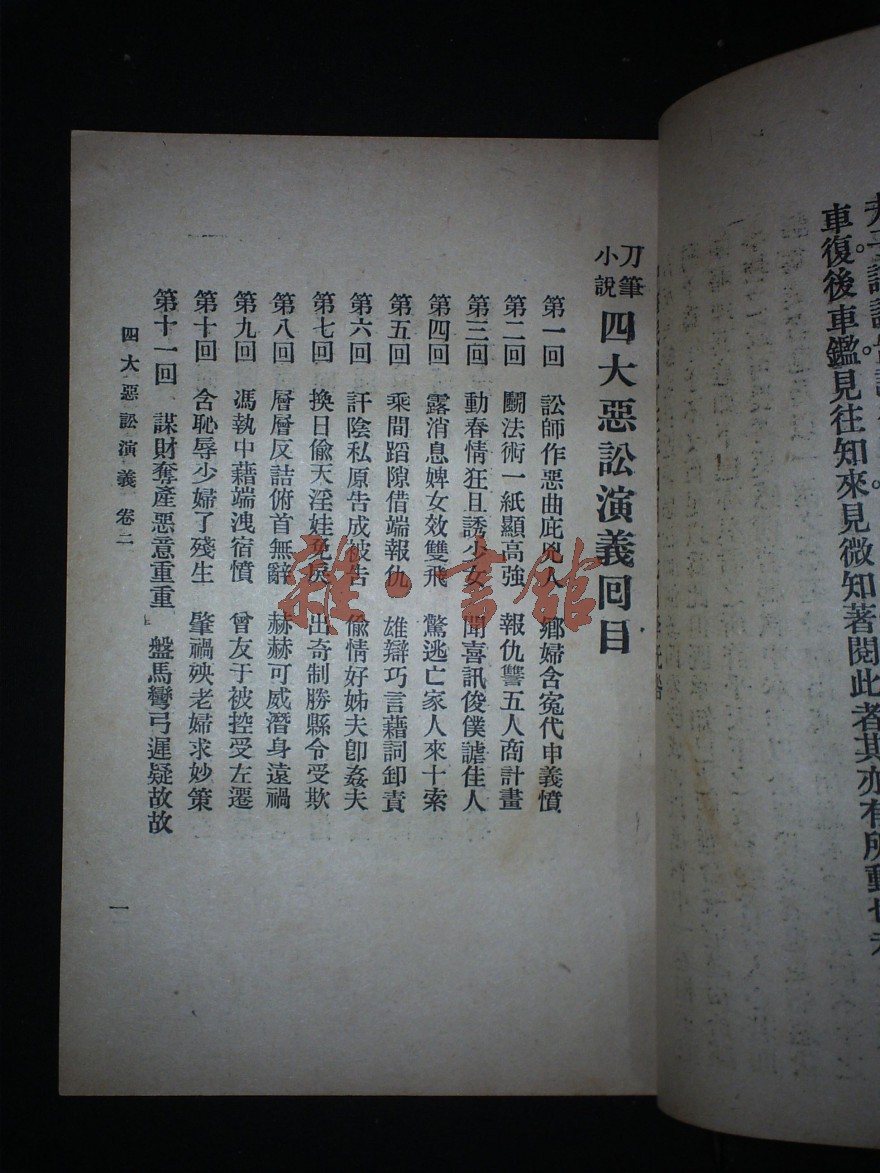 車復後車鑑見往知來見微知著閱此者其亦有所動也
刀筆小說 四大惡訟演義回目
第一回 訟師作惡曲庇兇人 鄉婦含冤代申義憤
第二回 鬬法術一紙顯高強 報仇讐五人商計畫
第三回 動春情狂且誘少女 聞喜訊俊僕謔佳人
第四回 露消息婢女效雙飛 驚逃亡家人來十索
第五回 乘間蹈隙借端報仇 雄辯巧言藉詞卸責
第六回 訐陰私原告成被告 偸情好姊夫卽姦夫
第七回 換日偸天淫娃免戾 出奇制勝縣令受欺
第八回 層層反詰俯首無辭 赫赫可威潛身遠禍
第九回 馮執中藉端洩宿憤 曾友于被控受左遷
第十回 含恥辱少婦了殘生 肇禍殃老婦求妙策
第十一回 謀財奪產惡意重重 盤馬彎弓遲疑故故
四大惡訟演義 卷二
一
雜·書館